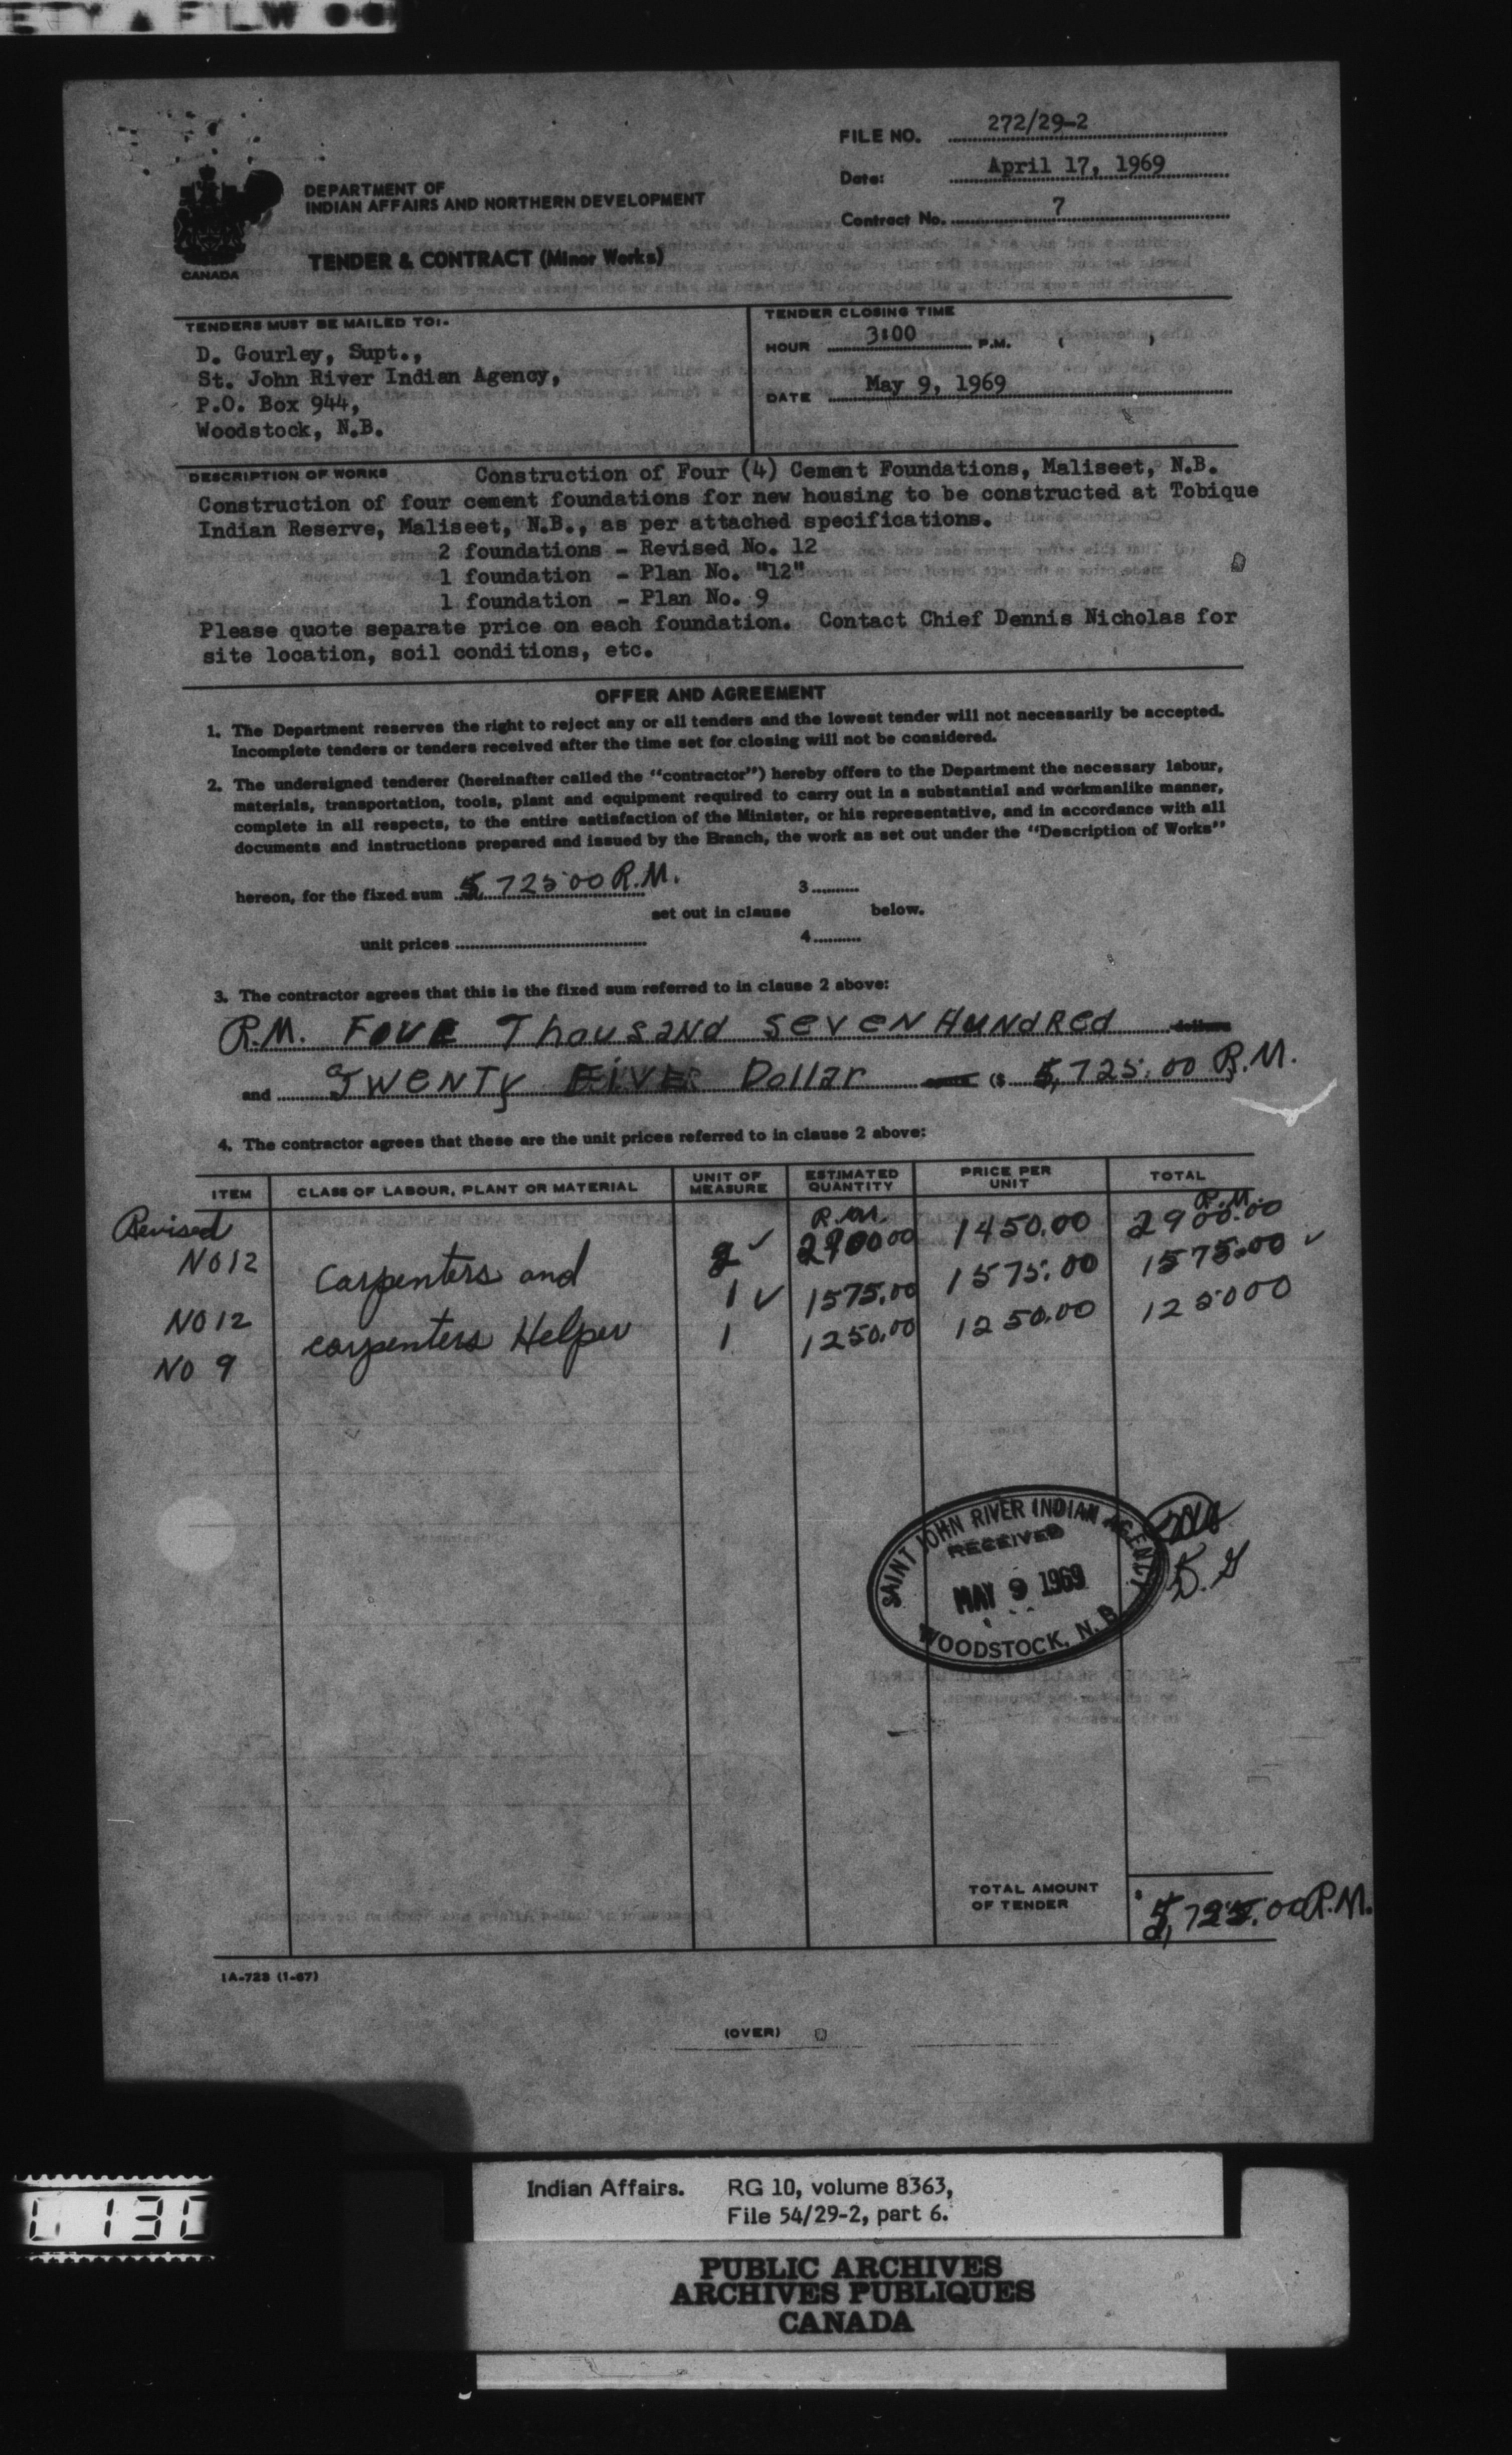 ETY A FILM
FILE NO. 272/29-2
Date: April 17, 1969
Contract No. 7
DEPARTMENT OF
INDIAN AFFAIRS AND NORTHERN DEVELOPMENT
CANADA
TENDER & CONTRACT (Minor Works)
TENDERS MUST BE MAILED TO:-
D. Gourley, Supt.,
St. John River Indian Agency,
P.O. Box 944,
Woodstock, N.B.
TENDER CLOSING TIME
HOUR 3:00 P.M. ( )
DATE May 9, 1969
DESCRIPTION OF WORKS Construction of Four (4) Cement Foundations, Maliseet, N.B.
Construction of four cement foundations for new housing to be constructed at Tobique
Indian Reserve, Maliseet, N.B., as per attached specifications.
2 foundations - Revised No. 12
1 foundation - Plan No. "12"
1 foundation - Plan No. 9
Please quote separate price on each foundation. Contact Chief Dennis Nicholas for
site location, soil conditions, etc.
OFFER AND AGREEMENT
1. The Department reserves the right to reject any or all tenders and the lowest tender will not necessarily be accepted.
Incomplete tenders or tenders received after the time set for closing will not be considered.
2. The undersigned tenderer (hereinafter called the "contractor") hereby offers to the Department the necessary labour,
materials, transportation, tools, plant and equipment required to carry out in a substantial and workmanlike manner,
complete in all respects, to the entire satisfaction of the Minister, or his representative, and in accordance with all
documents and instructions prepared and issued by the Branch, the work as set out under the "Description of Works"
hereon, for the fixed sum 5,725.00 R.M. 3
set out in clause below.
unit prices 4
3. The contractor agrees that this is the fixed sum referred to in clause 2 above:
R.M. Foue Thousand seveN HuNdRed dollars
and TweNTy FIVE Dollar cents ($ 5,725.00 R.M.
4. The contractor agrees that these are the unit prices referred to in clause 2 above:
ITEM CLASS OF LABOUR, PLANT OR MATERIAL UNIT OF MEASURE ESTIMATED QUANTITY PRICE PER UNIT TOTAL
Revised R.M. R.M.
NO 12 2 ✓ 2900.00 1450.00 2900.00
Carpenters and 1 ✓ 1575.00 1575.00 1575.00 ✓
NO 12
carpenters Helper 1 1250.00 1250.00 1250.00
NO 9
SAINT JOHN RIVER INDIAN AGENCY
RECEIVED
MAY 9 1969
WOODSTOCK, N.B.
D.G
TOTAL AMOUNT
OF TENDER $ 5,725.00 R.M.
IA-723 (1-67)
(OVER)
0130
Indian Affairs. RG 10, volume 8363,
File 54/29-2, part 6.
PUBLIC ARCHIVES
ARCHIVES PUBLIQUES
CANADA